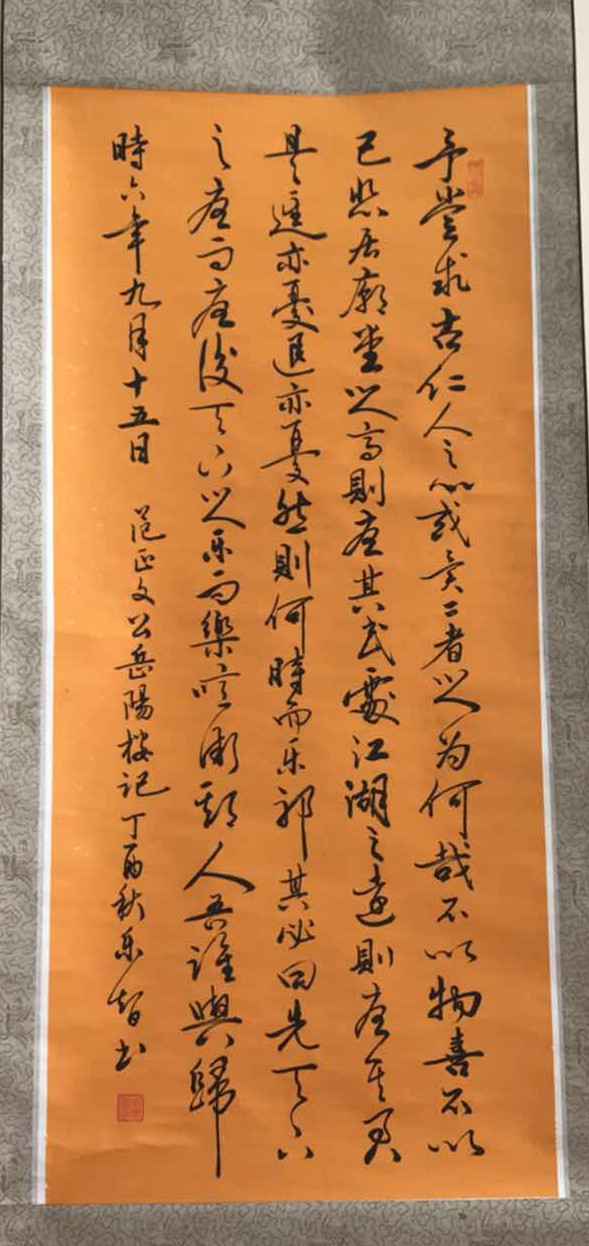 予嘗求古仁人之心或異二者之为何哉不以物喜不以
己悲居廟堂之高則憂其民處江湖之遠則憂其君
是進亦憂退亦憂然則何時而乐耶其必曰先天下
之憂而憂後天下之乐而樂噫微斯人吾誰與歸
時六年九月十五日 范正文公岳陽楼记丁酉秋乐智书